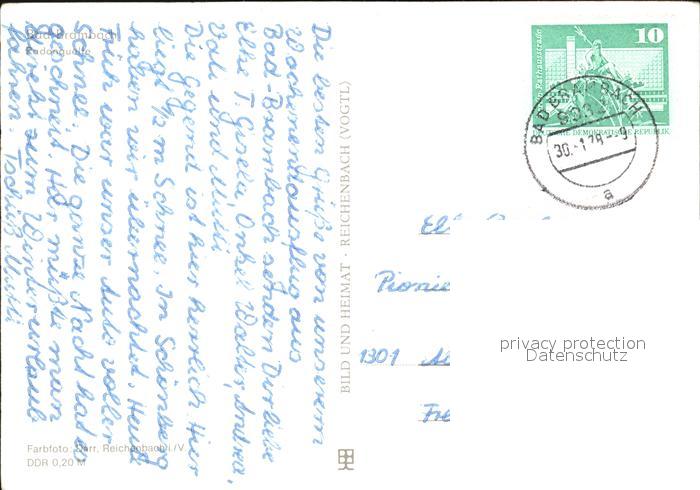 Bad Brambach
Radonquelle
Die besten Grüße von unserem
Wochenendausflug aus
Bad-Brambach senden Dir liebe
Elke T. Gisela, Onkel Walter, Andrea,
Vati und Mutti
Die Gegend ist hier herrlich. Hier
liegt 1/2 m Schnee. In Schönberg
haben wir übernachtet. Heute
früh war unser Auto voller
Schnee. Die ganze Nacht hat es
geschneit. Hier müßte man
direkt zum Winterurlaub
fahren. Tschüß Mutti
Farbfoto: Darr, Reichenbach i. V.
DDR 0,20 M
BILD UND HEIMAT · REICHENBACH (VOGTL)
Rathausstraße
10
DEMOKRATISCHE REPUBLIK
BAD BRAMBACH
30.-1.79.-9
a
Pionie
1301
Fre
privacy protection
Datenschutz